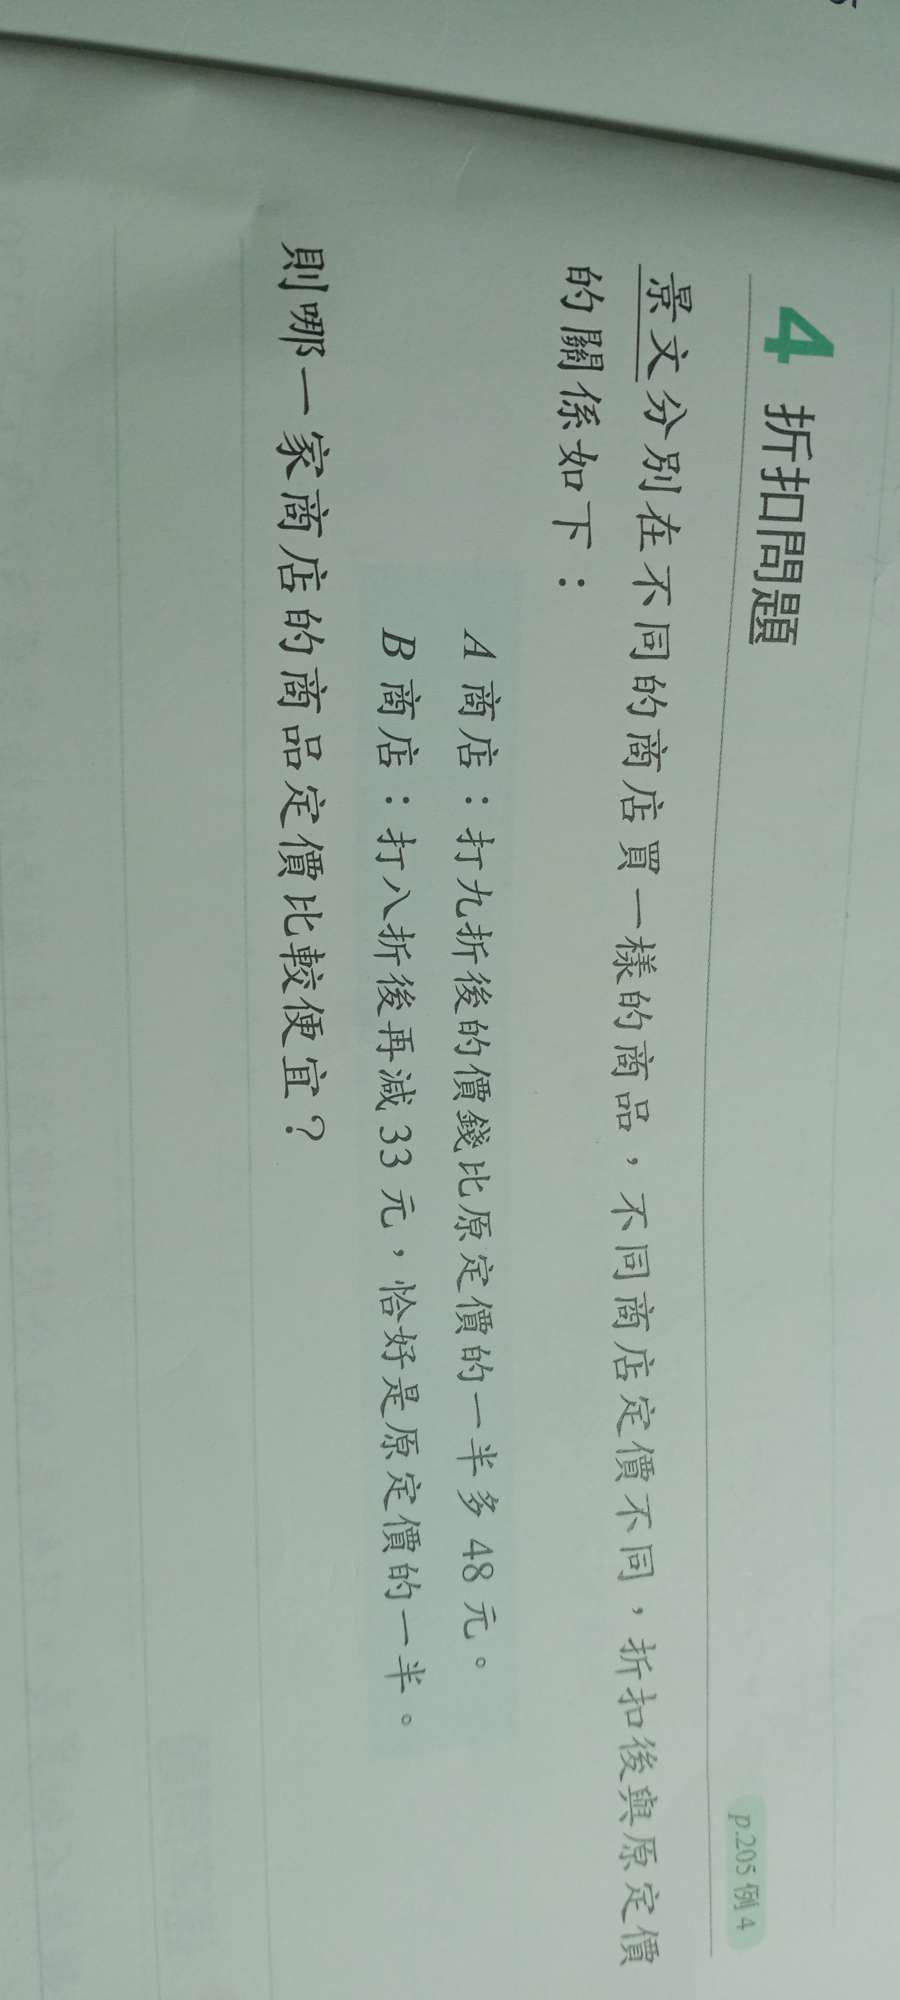 4 折扣問題
p.205 例 4
景文分別在不同的商店買一樣的商品，不同商店定價不同，折扣後與原定價
的關係如下：
A 商店：打九折後的價錢比原定價的一半多 48 元。
B 商店：打八折後再減 33 元，恰好是原定價的一半。
則哪一家商店的商品定價比較便宜？